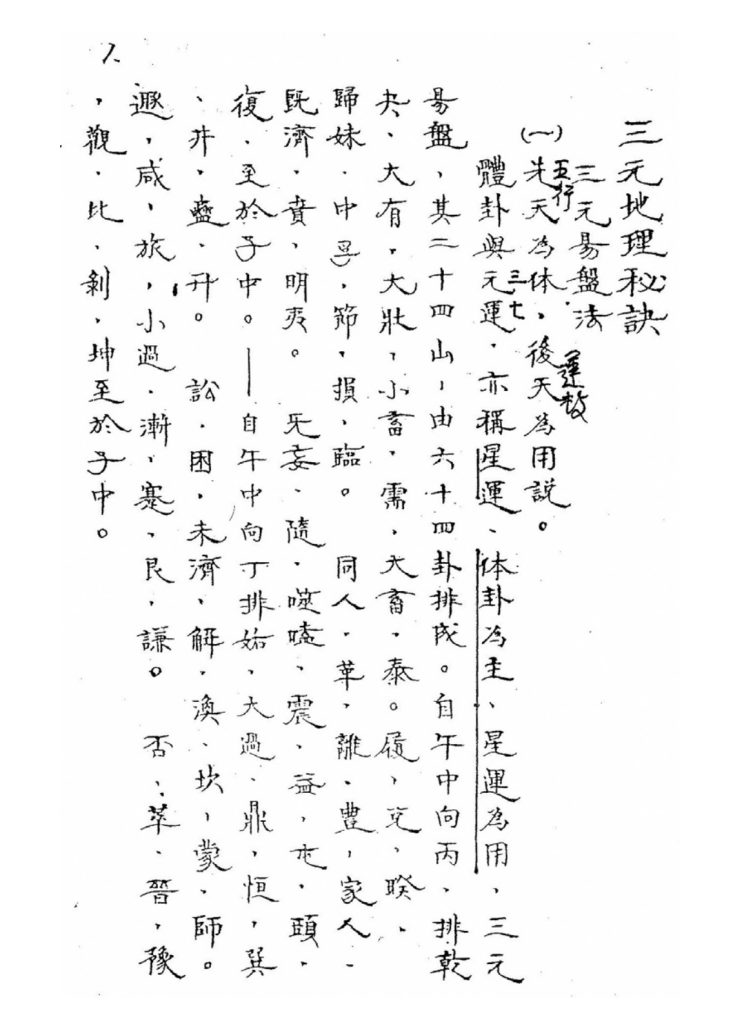 1.
三元地理秘訣
三元易盤法
五行 運救
(一)先天為体,後天為用説。
三七
體卦與元運,亦稱星運、体卦為主、星運為用,三元
易盤,其二十四山,由六十四卦排成。自午中向丙、排乾
夬、大有,大壯,小畜,需,大畜,泰。履,兌,睽、
歸妹.中孚,節,損,臨。 同人,革,離,豊,家人、
既濟,賁,明夷。 旡妄、隨,噬嗑、震、益,屯,頤,
復.至於子中。——自午中向丁排姤、大過、鼎,恒,巽
、井,蠱、升。 訟,困,未濟,解、渙、坎,蒙、師。
遯,咸,旅,小過、漸、蹇、艮,謙。 否、萃、晉,豫
,觀、比、剝,坤至於子中。